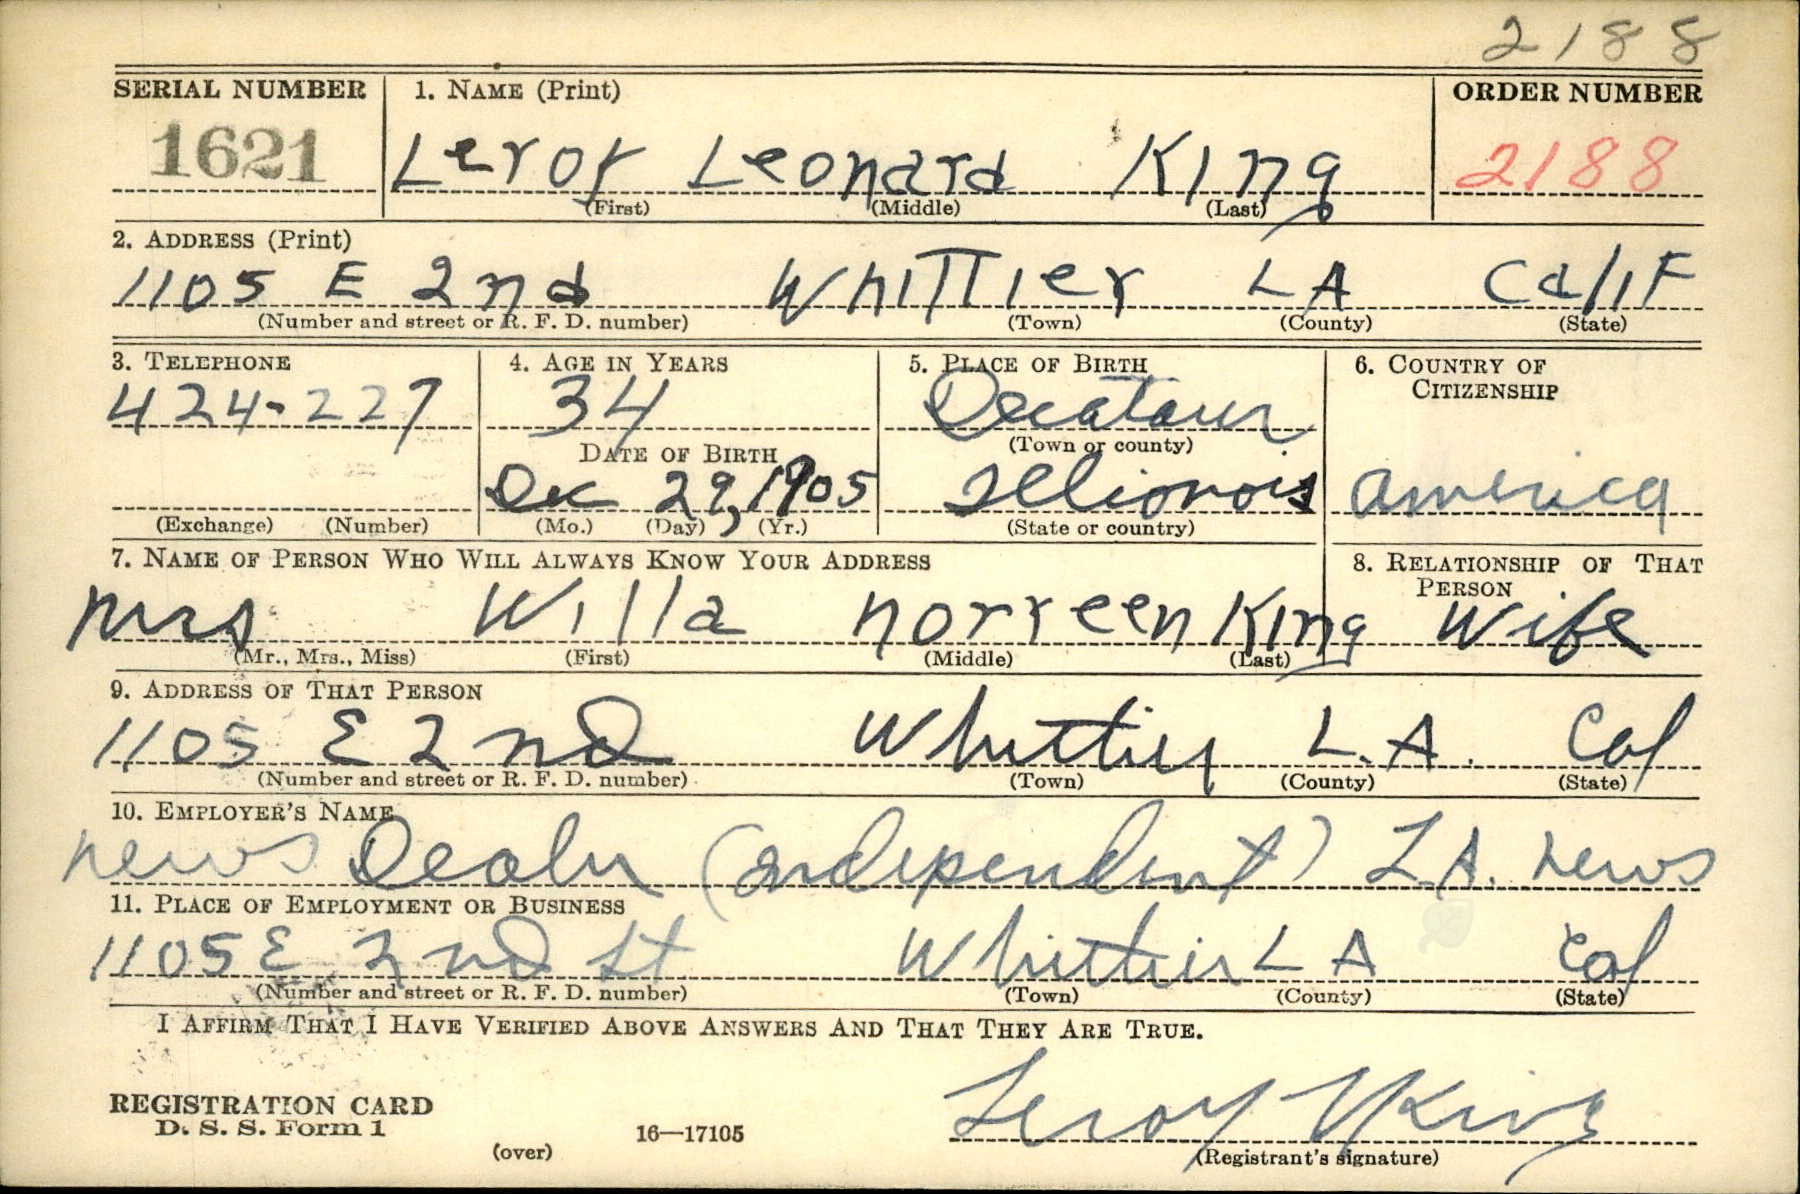 2188
SERIAL NUMBER 1. NAME (Print) ORDER NUMBER
1621 Leroy Leonard King 2188
(First) (Middle) (Last)
2. ADDRESS (Print)
1105 E 2nd Whittier LA Calif
(Number and street or R. F. D. number) (Town) (County) (State)
3. TELEPHONE 4. AGE IN YEARS 5. PLACE OF BIRTH 6. COUNTRY OF CITIZENSHIP
424-227 34 Decatur
DATE OF BIRTH (Town or county)
Dec 29, 1905 Illionois America
(Exchange) (Number) (Mo.) (Day) (Yr.) (State or country)
7. NAME OF PERSON WHO WILL ALWAYS KNOW YOUR ADDRESS 8. RELATIONSHIP OF THAT PERSON
Mrs Willa Norreen King Wife
(Mr., Mrs., Miss) (First) (Middle) (Last)
9. ADDRESS OF THAT PERSON
1105 E 2nd Whittier L.A. Cal
(Number and street or R. F. D. number) (Town) (County) (State)
10. EMPLOYER'S NAME
News Dealer (independent) L.A. News
11. PLACE OF EMPLOYMENT OR BUSINESS
1105 E 2nd St Whittier LA Cal
(Number and street or R. F. D. number) (Town) (County) (State)
I AFFIRM THAT I HAVE VERIFIED ABOVE ANSWERS AND THAT THEY ARE TRUE.
REGISTRATION CARD
D. S. S. Form 1 Leroy L King
(over) 16—17105 (Registrant's signature)